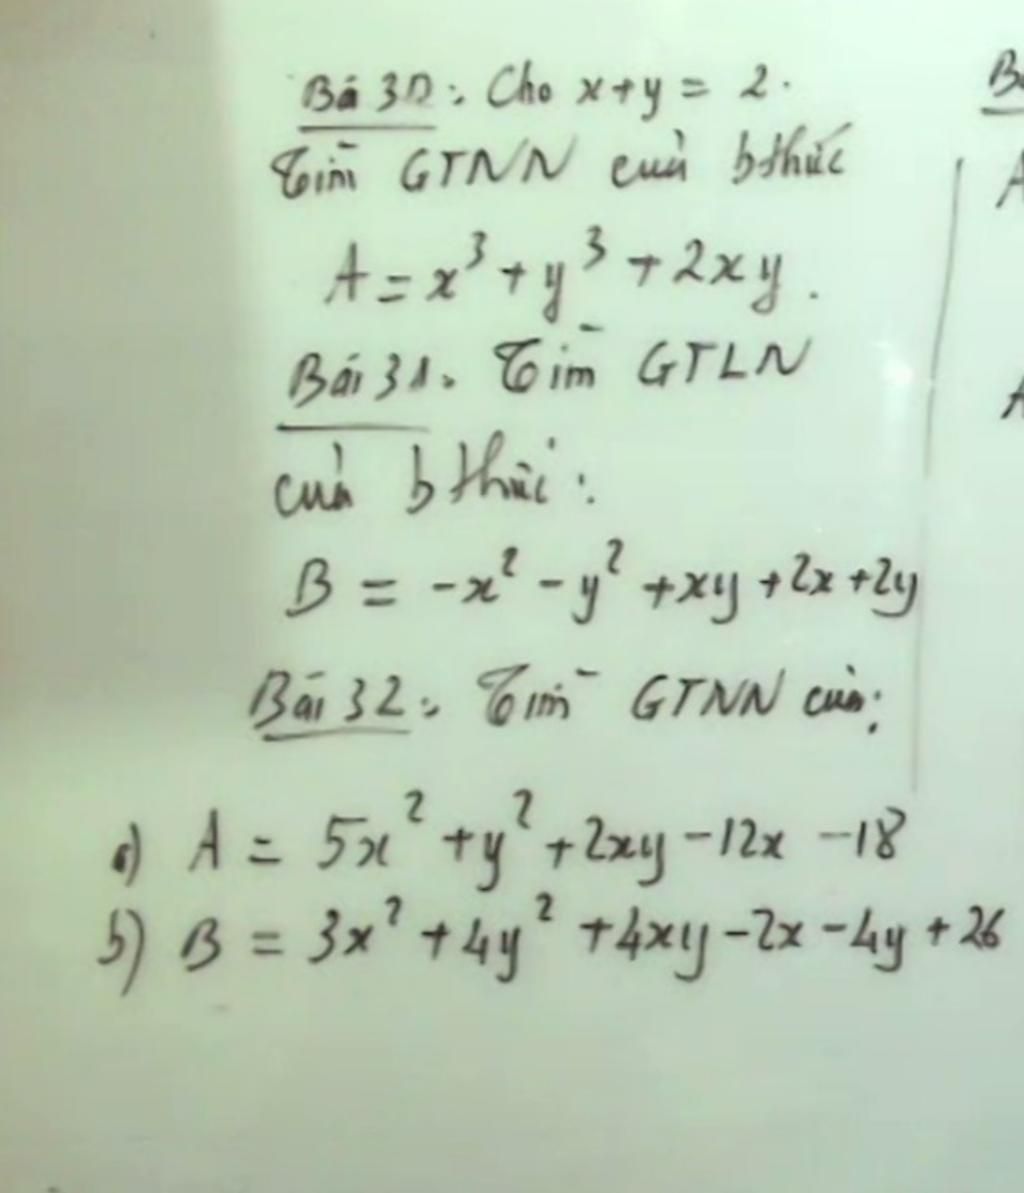 Bài 30: Cho x+y = 2.
Tìm GTNN của bthức
A = x³ + y³ + 2xy.
Bài 31. Tìm GTLN
của bthức:
B = -x² - y² + xy + 2x + 2y
Bài 32: Tìm GTNN của:
a) A = 5x² + y² + 2xy - 12x - 18
b) B = 3x² + 4y² + 4xy - 2x - 4y + 26